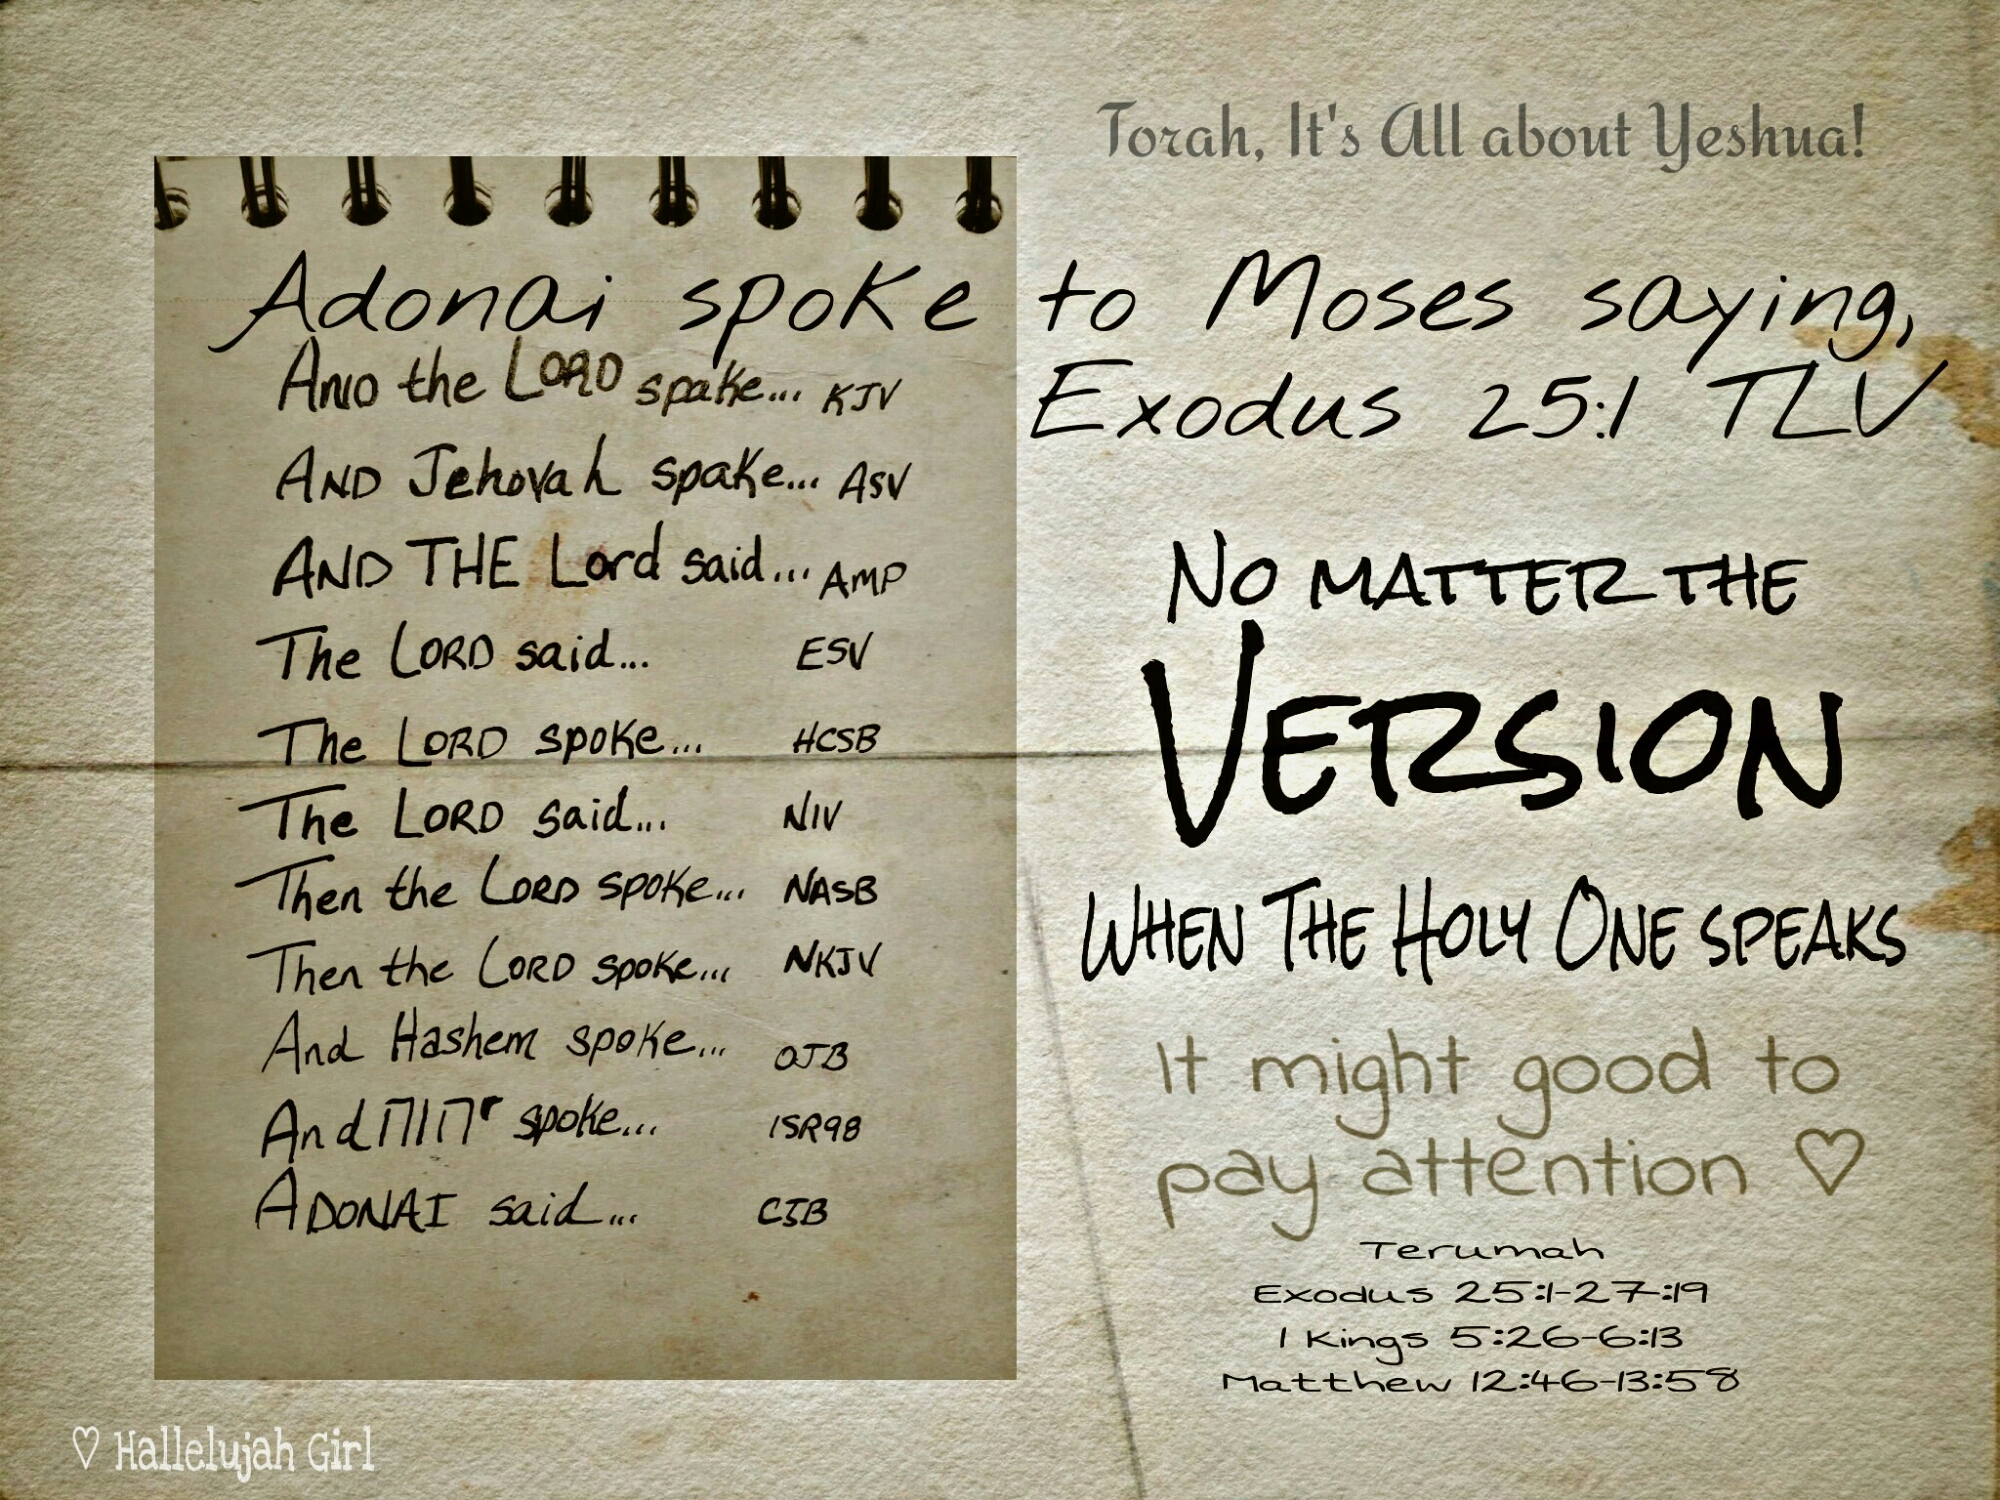 Torah, It's All about Yeshua!
Adonai spoke to Moses saying,
Exodus 25:1 TLV
And the LORD spake... KJV
AND Jehovah spake... ASV
AND THE Lord said... AMP
The LORD said... ESV
The LORD spoke... HCSB
The LORD said... NIV
Then the LORD spoke... NASB
Then the LORD spoke... NKJV
And Hashem spoke... OJB
And יהוה spoke... ISR98
ADONAI said... CJB
NO MATTER THE
VERSION
WHEN THE HOLY ONE SPEAKS
It might good to
pay attention ♡
Terumah
Exodus 25:1-27:19
1 Kings 5:26-6:13
Matthew 12:46-13:58
♡ Hallelujah Girl